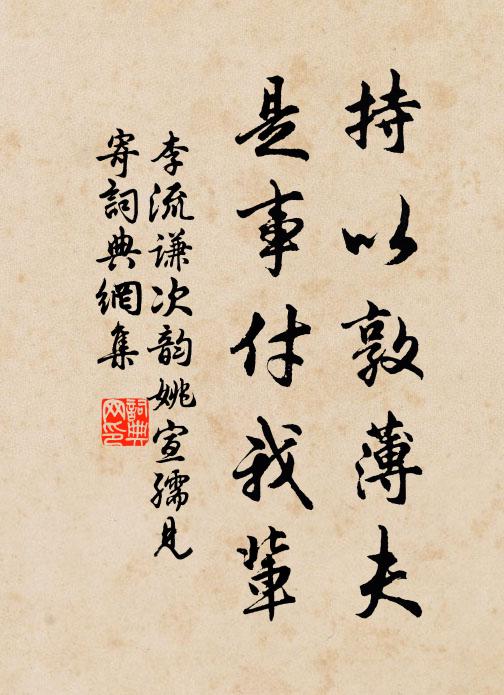 持以敦薄夫
是事付我輩
李流谦次韵姚宣孺见
寄詞典網集
詞典
网印